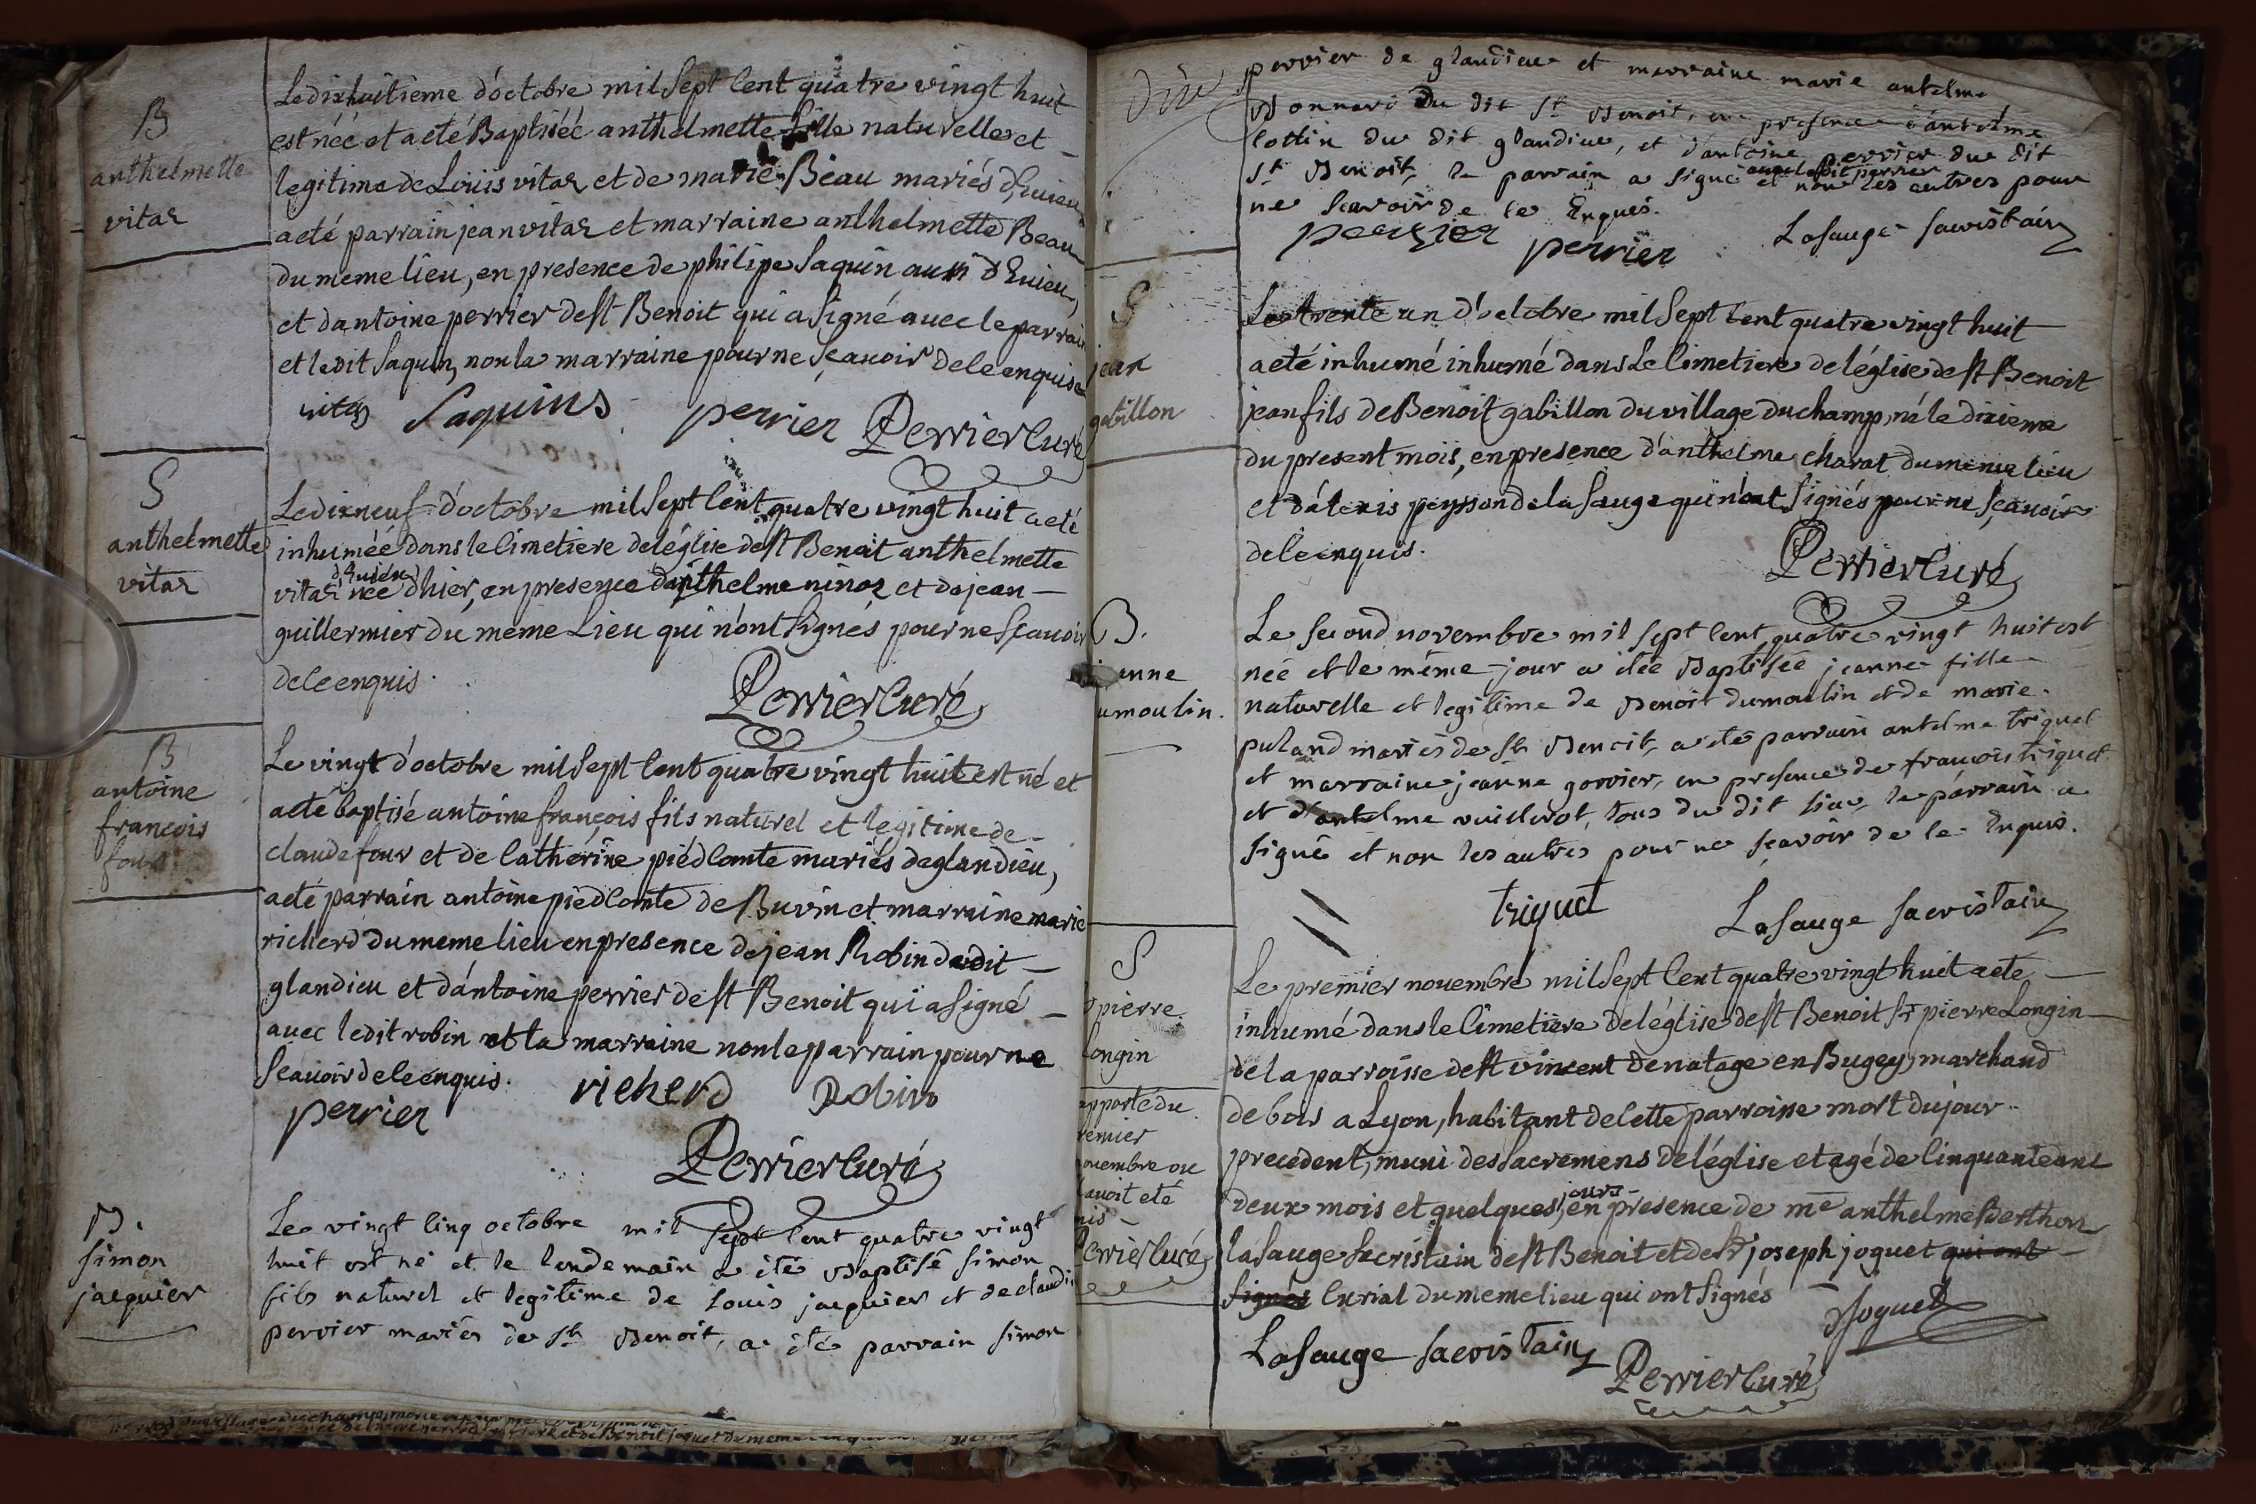 B
anthelmette
vitaz
Le dixhuitieme d'octobre mil sept cent quatre vingt huit
est néé et a eté Baptiséé anthelmette fille naturelle et
legitime de Loüis vitaz et de marie Beau mariés d'Evieu
a eté parrain jean vitaz et marraine anthelmette Beau
du meme lieu, en presence de philipe Saquin aussi d'Evieu,
et d'antoine perrier de St Benoit qui a signé avec le parrain
et le dit Saquin, non la marraine pour ne sçauoir de ce enquise
vitaz Saquins perrier Perrier Curé
S
anthelmette
vitaz
Le dixneuf d'octobre mil sept cent quatre vingt huit a eté
inhuméé dans le cimetiere de léglise de St Benoit anthelmette
d'Evieu
vitaz née d'hier, en presence d'anthelme ninoz et de jean
guillermier du même Lieu qui n'ont signés pour ne sçauoir
de ce enquis.
Perrier Curé
B
antoine
françois
four
Le vingt d'octobre mil sept cent quatre vingt huit est né et
a eté baptisé antoine françois fils naturel et legitime de
claude four et de Catherine piédComte mariés de glandieu,
a eté parrain antoine piedComte de Buvin et marraine marie
richerd du meme lieu en presence de jean Robin du dit
glandieu et d'antoine perrier de St Benoit qui a signé
avec le dit robin et la marraine non le parrain pour ne
sçauoir de ce enquis. richerd Robin
perrier
Perrier Curé
B.
simon
jacquier
Le vingt cinq octobre mil sept cent quatre vingt
huit est né et le lendemain a été Baptisé simon
fils naturel et legitime de Louis jacquier et de claudine
perrier mariés de St Benoit, a été parrain simon
perrier de glandieu et marraine marie antelme
Bonnard du dit St Benoit, en presence d'antelme
Cottin du dit glandieu, et d'antoine perrier du dit
avec le dit perrier
St Benoit, le parrain a signé et non les autres pour
ne scavoir de ce Enquis.
perrier perrier Lasauge sacristain
S
jean
gabillon
Le trente un d'octobre mil sept cent quatre vingt huit
a eté inhumé inhumé dans le Cimetiere de léglise de St Benoit
jean fils de Benoit gabillon du village du champ, né le dixieme
du present mois, en presence d'anthelme charat du meme lieu
et peysson de la Sauge qui n'ont signés pour ne sçauoir
de ce enquis.
Perrier Curé
B.
jeanne
dumoulin.
Le second novembre mil sept cent quatre vingt huit est
néé et le même jour a étée Baptisée jeanne fille
naturelle et legitime de Benoit dumoulin et de marie
puland mariés de St Benoit, a été parrain antelme triquet
et marraine jeanne gorrier, en presence de francois triquet
et d'antelme vuillerot, tous du dit lieu, le parrain a
signé et non les autres pour ne sçavoir de ce Enquis.
triquet Lasauge sacristain
S
pierre
Longin
apporté du
premier
novembre ou
l'avoit eté
mis
Perrier Curé
Le premier nouembre mil sept Cent quatre vingt huit a eté
inhumé dans le Cimetiere de léglise de St Benoit Sr pierre Longin
de la parroisse de St vincent de natage en Bugey, marchand
de bois a Lyon, habitant de Cette parroisse mort du jour
precedent, muni des sacremens de léglise et agé de Cinquante ans
jours
deux mois et quelques, en presence de me anthelme Berthon
lasauge sacristain de St Benoit et de Sr joseph joguet qui ont
signés Curial du meme lieu qui ont signés
Joguet
Lasauge sacristain Perrier Curé